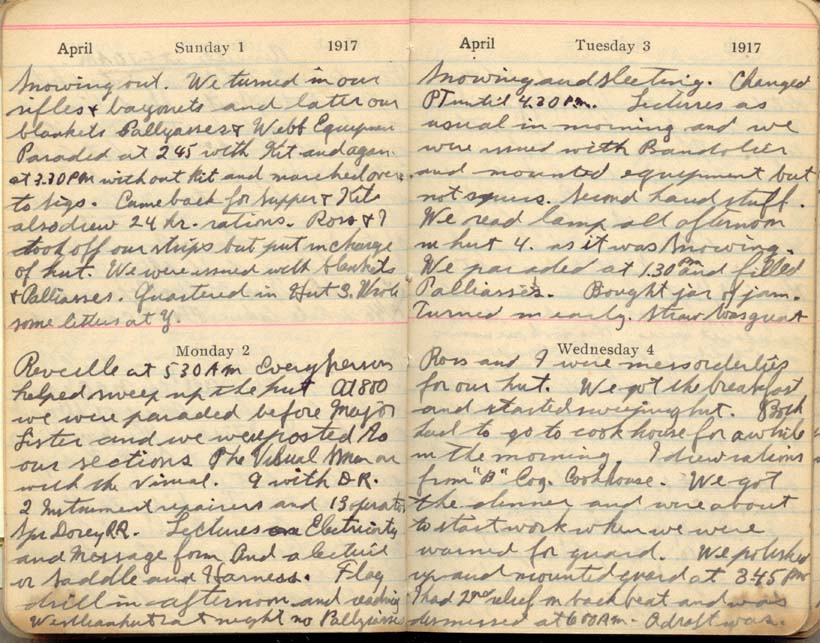 April Sunday 1 1917
Snowing out. We turned in our
rifles & bayonets and latter our
blankets Pallyasses & Webb Equipmen
Paraded at 245 with Kit and again
at 3.30 PM without Kit and marched over
to Sigs. Came back for supper & Kits
also drew 24 hr. rations. Ross & I
took off our strips but put in charge
of hut. We were issued with blankets
& Palliasses. Quartered in Hut 3. Wrote
some letters at Y.
Monday 2
Reveille at 530 AM Every person
helped sweep up the hut At 800
we were paraded before Major
Lister and we were posted to
our sections The Visual Men on
with the Visual. 9 with D.R.
2 Instrument repairers and 13 operators
Spr Dorey RR. Lectures on Electricity
and Message form And a lecture
on Saddle and Harness. Flag
drill in afternoon and reading
at night no Palliasses
April Tuesday 3 1917
Snowing and sleeting. Changed
PT until 4.30 P.M. Lectures as
usual in morning and we
were issued with Bandolier
and mounted equipment but
not spurs. Second hand stuff.
We read lamp all afternoon
in hut 4. as it was snowing.
We paraded at 1.30 PM and filled
Palliasses. Bought jar of jam.
Turned in early. Straw was great
Wednesday 4
Ross and I were mess orderlies
for our hut. We got the breakfast
and started sweeping hut. Both
had to go to cook house for a while
in the morning. I drew rations
from "B" Coy. Cookhouse. We got
the dinner and were about
to start work when we were
warned for guard. We polished
up and mounted guard at 3.45 PM
I had 2nd relief on back beat and was
dismissed at 600 AM. A draft was.